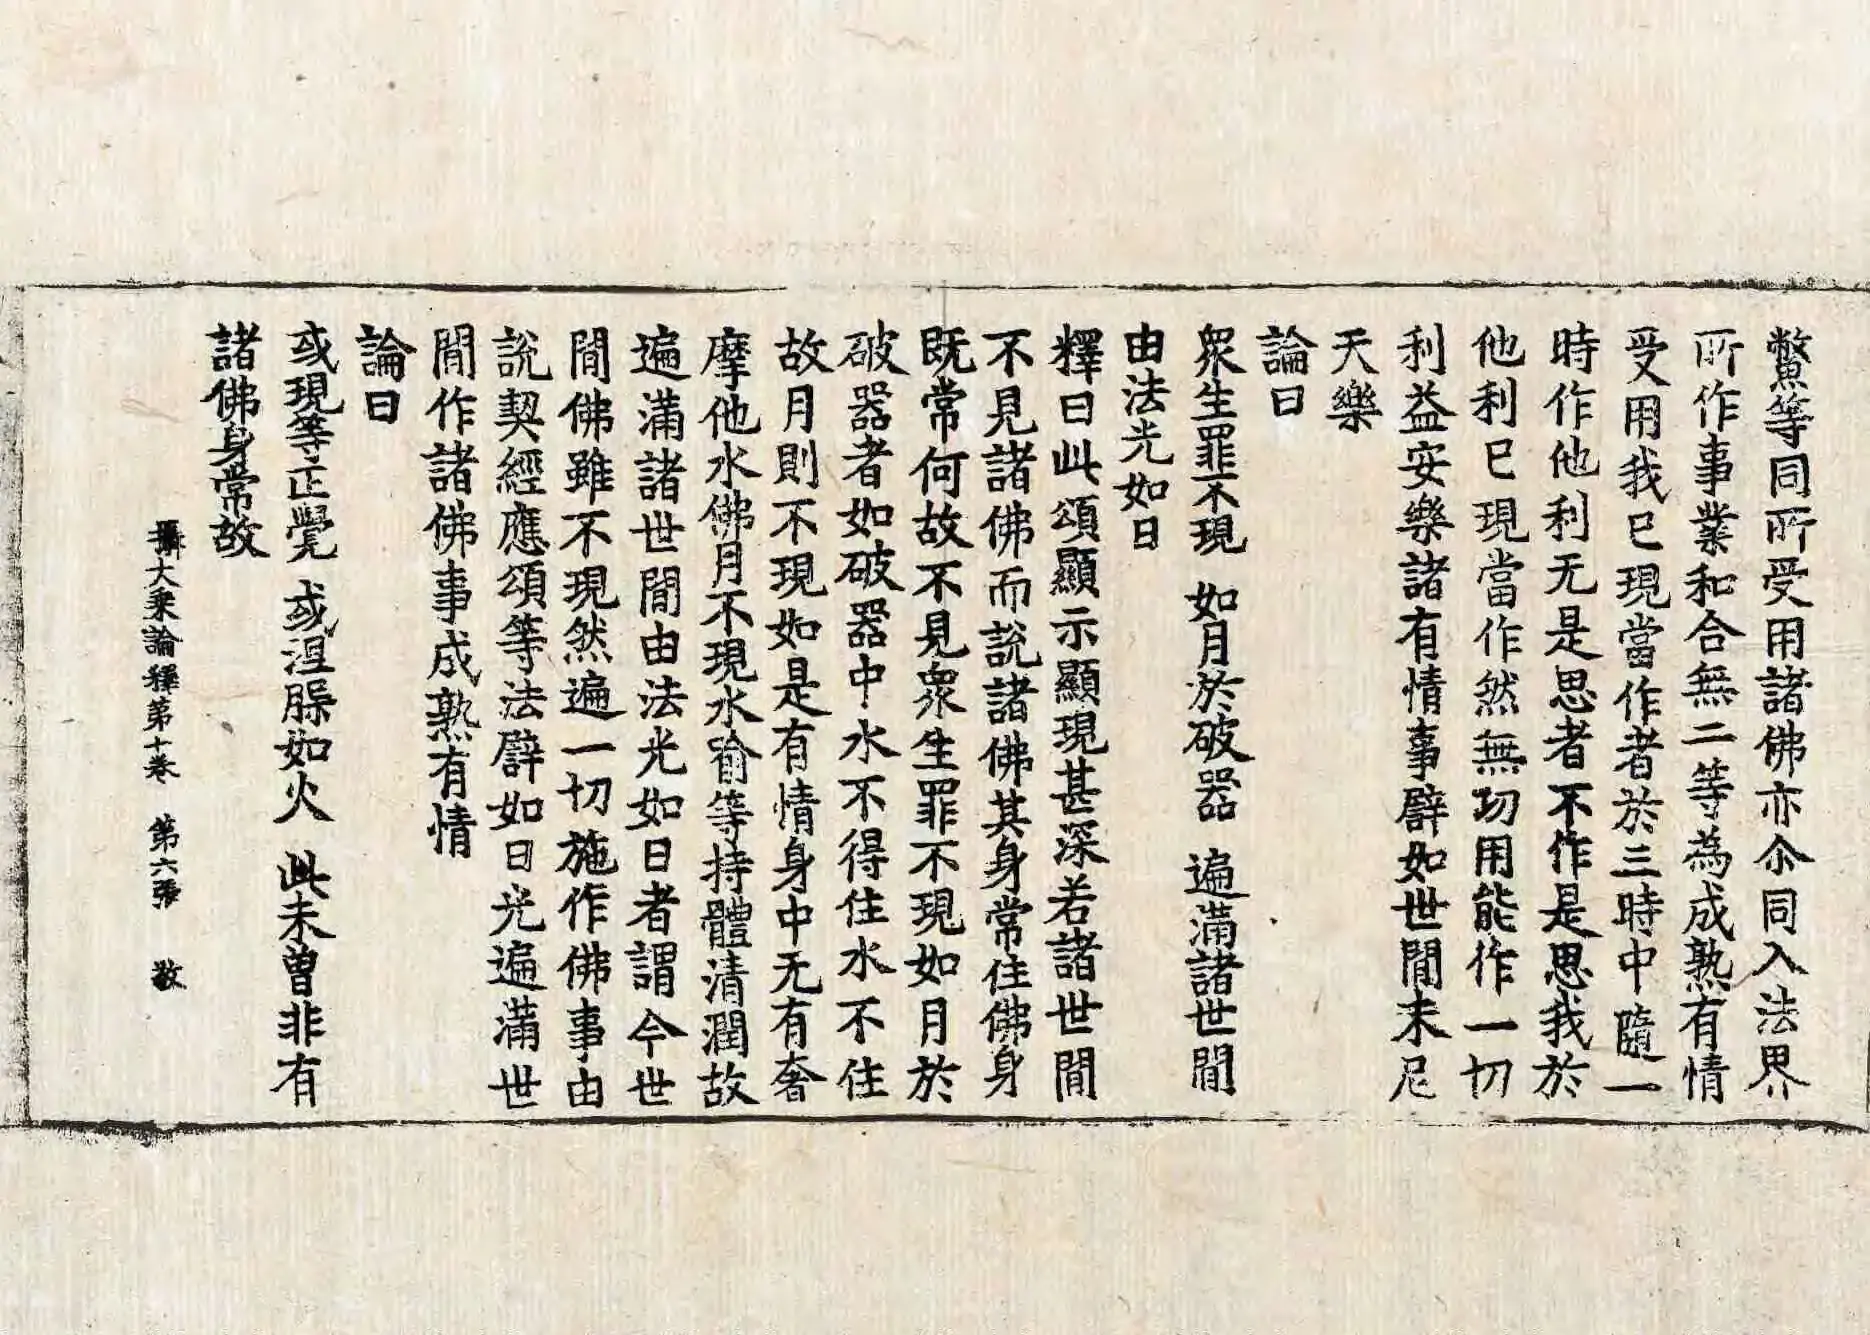 鱉等同所受用諸佛亦尒同入法界
所作事業和合無二等為成熟有情
受用我已現當作者於三時中隨一
時作他利无是思者不作是思我於
他利已現當作然無功用能作一切
利益安樂諸有情事譬如世閒末尼
天樂
論曰
衆生罪不現 如月於破器 遍滿諸世閒
由法光如日
釋曰此頌顯示顯現甚深若諸世閒
不見諸佛而說諸佛其身常住佛身
既常何故不見衆生罪不現如月於
破器者如破器中水不得住水不住
故月則不現如是有情身中无有奢
摩他水佛月不現水喻等持體清潤故
遍滿諸世閒由法光如日者謂今世
閒佛雖不現然遍一切施作佛事由
說契經應頌等法譬如日光遍滿世
閒作諸佛事成熟有情
論曰
或現等正覺 或涅槃如火 此未曾非有
諸佛身常故
攝大乘論釋第十卷 第六張 敬